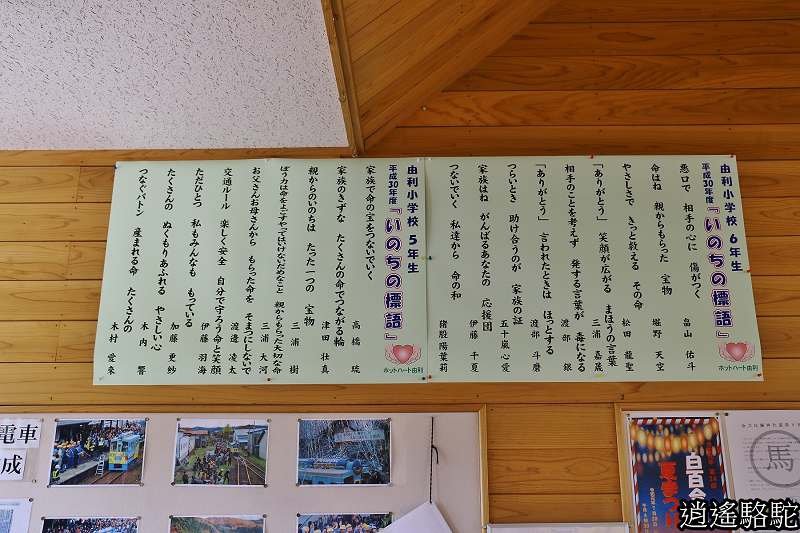 由利小学校 6年生
平成30年度『いのちの標語』
悪口で 相手の心に 傷がつく
畠山 佑斗
命はね 親からもらった 宝物
堀野 天空
やさしさで きっと救える その命
松田 龍聖
「ありがとう」 笑顔が広がる まほうの言葉
三浦 嘉晟
相手のことを考えず 発する言葉が 毒になる
渡部 銀
「ありがとう」 言われたときは ほっとする
渡部 斗磨
つらいとき 助け合うのが 家族の証
五十嵐 心愛
家族はね がんばるあなたの 応援団
伊藤 千夏
つないでいく 私達から 命の和
猪股 陽茉莉
ホットハート由利
由利小学校 5年生
平成30年度『いのちの標語』
家族で命の宝をつないでいく
高橋 琉
家族のきずな たくさんの命でつながる輪
津田 壮真
親からのいのちは たった一つの 宝物
三浦 樹
ぼう力は命をよごすやってはいけないだめなこと 親からもらった大切な命
三浦 大河
お父さんお母さんから もらった命を そまつにしないで
渡邊 凌太
交通ルール 楽しく安全 自分で守ろう命と笑顔
伊藤 羽海
ただひとつ 私もみんなも もっている
加藤 更紗
たくさんの ぬくもりあふれる やさしい心
木内 響
つなぐバトン 産まれる命 たくさんの
木村 愛来
ホットハート由利
電車
成
白百合
夏まつり
馬
逍遙駱駝